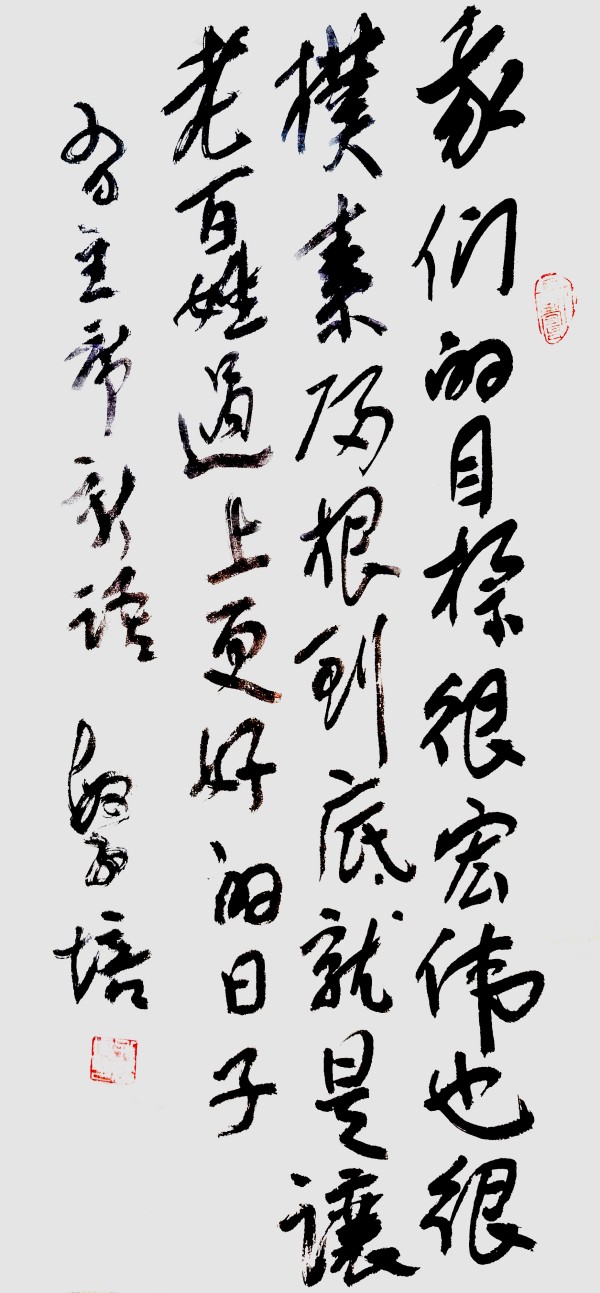 我们的目标很宏伟也很
樸素归根到底就是讓
老百姓過上更好的日子
習主席新語 培